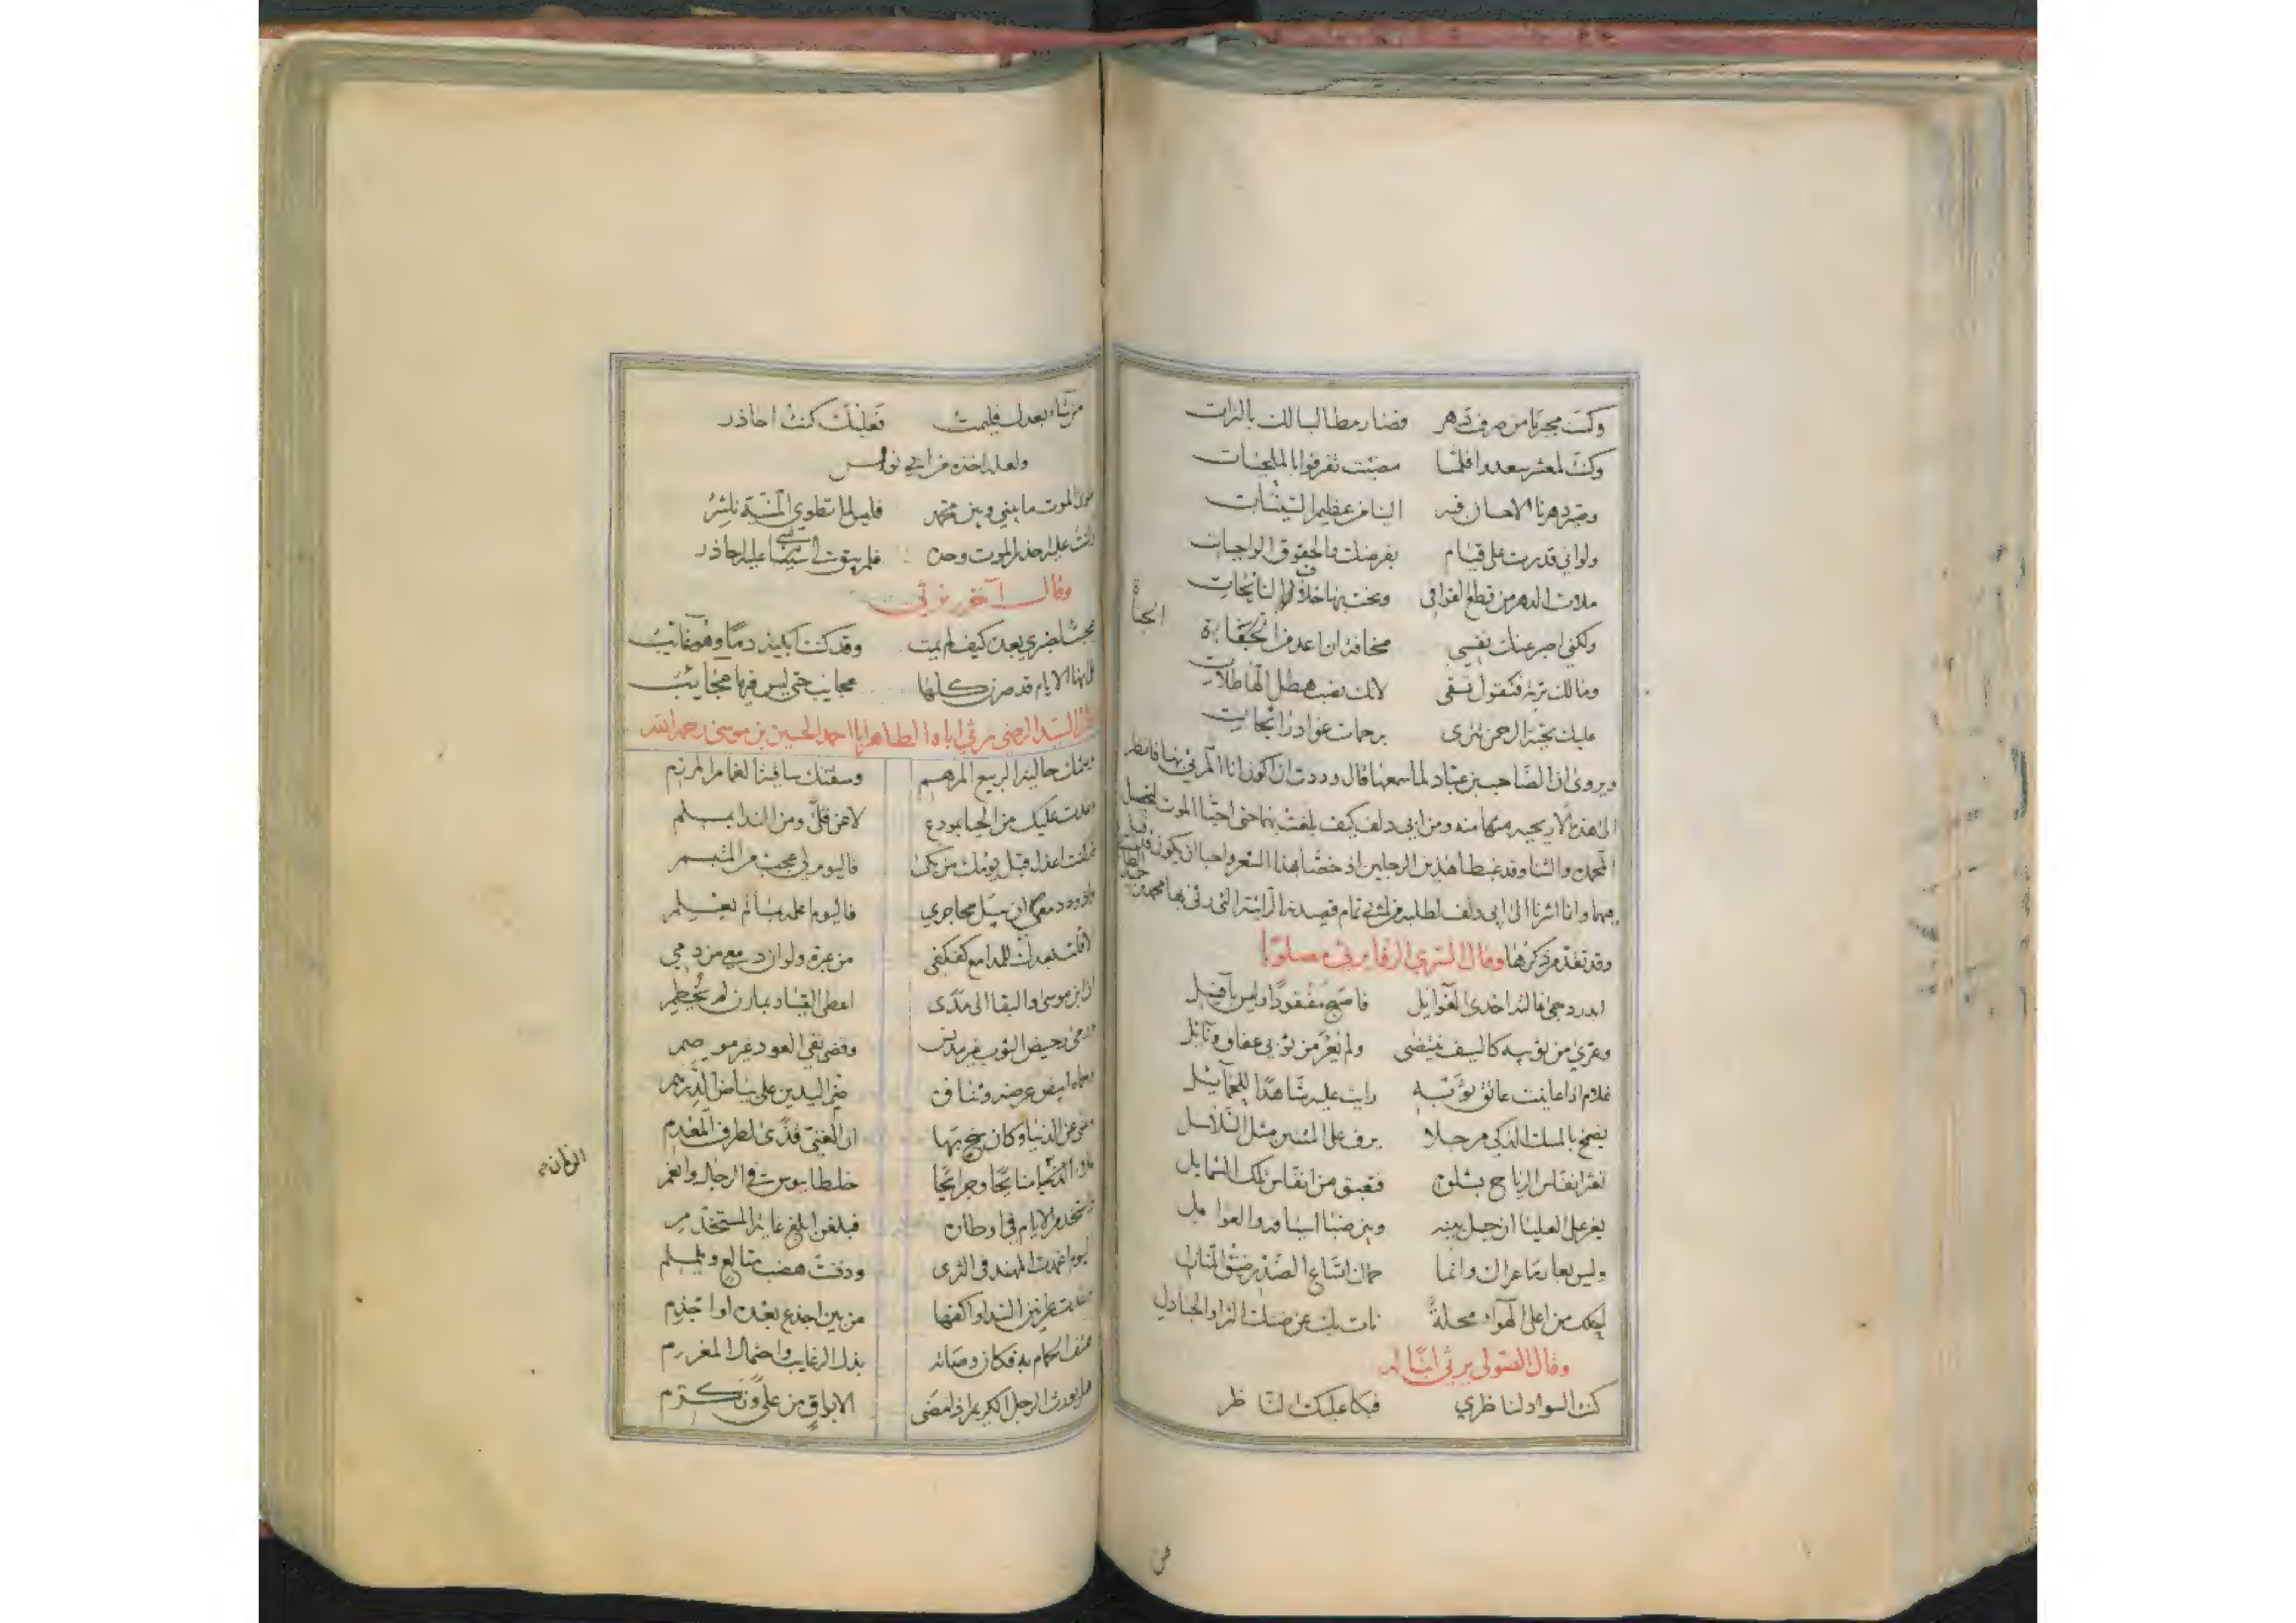 وكنت مجيرنا من صرف دهر فصار مطالبا لك بالترات
وكنت لمعشر سعدوا فلما مضيت تفرقوا بالمنحسات
وصير دهرنا الاحسان فيه الينا من عظيم السيئات
ولو اني قدرت على قيام بفرضك والحقوق الواجبات
ملات الدهر من نظم القوافي ونحت بها خلاف النائحات
ولكني اصبر عنك نفسي مخافة ان اعد من الجناة
ومالك تربة فنقول تسقى لانك نصب هطل الهاطلات
عليك تحية الرحمن تترى برحمات غواد رائحات
ويروى ان الصاحب بن عباد لما سمعها قال وددت ان اكون انا المرثي بها فانظر
الى هذه الاريحية منه ومن ابي دلف كيف بلغت بهما حتى احبا الموت لتحصيل
المحمدة والثنا وقد غبطا هذين الرجلين اذ خصا بهذا الشعر واحبا ان يكون
فيهما وانا اشرنا الى ابي دلف لطلبه من تمام قصيدته الرائية التي رثى بها محمد بن حميد الطائي
وقد تقدم ذكرها وقال السري الرفا يرثي مصلوبا
ابدر دجى غالته احدى الغوائل فاصبح مفقودا وليس بآفل
وعري من ثوبيه كالسيف منتضى ولم يعر من ثوبي عفاف ونائل
غلام اذا عاينت عاتق ثوبه رايت عليه شاهدا للحمائل
يضمخ بالمسك الذكي مرجلا يرف على المتنين مثل السلاسل
تمر انفاس الرياح بشلوه فتعبق من انفاس تلك الشمايل
يعز على العليا ان حيل بينه وبين ضبا اسيافه والعوامل
وليس بعار ما عراه وانما حماه اتساع الصدر ضيق المنازل
احلك من اعلى الهواء محلة نات بك عن ضنك الثرا والجنادل
وقال الصولي يرثي ابنا له
كنت السواد لناظري فبكا عليك الناظر
من
من شاء بعدك فليمت فعليك كنت احاذر
ولعله اخذه من ابي نواس
طوى الموت ما بيني وبين محمد فليس لما تطوي المنية ناشر
وكنت عليه احذر الموت وحده فلم يبق لي شيئا عليه احاذر
وقال آخر يرثي
عجبت لصبري بعده كيف لم يمت وقد كنت ابكيه دما وهو غائب
على انها الايام قد صرن كلها عجايب حتى ليس فيها عجائب
وقال السيد الرضي يرثي اباه الطاهر ابا احمد الحسين بن موسى رحمه الله
وسمتك حالية الربيع المرهم وسقتك ساقية الغمام المرزم
وغدت عليك من الحيا بمودع لا عن قلى ومن الندا بمسلم
قد كنت اعذل قبل يومك من بكى فاليوم لي عجب من المتبسم
واذود دمعي ان يبل محاجري فاليوم اعلمه بما لم يعلم
لا قلت بعدك للمدامع كفكفي من عبرة ولو ان دمعي من دمي
ان ابن موسى والبقا الى مدى اعطى القياد بمارن لم يخطم
ومضى رحيض الثوب غير مدنس وقضى نقي العود غير موصم
وحماه ابيض عرضه وثنائه ضم اليدين على بياض الدرهم
وغني عن الدنيا وكان شجى بها ان الغني قذى لطرف المعدم
ملأ الزمان منائحا وجرائحا خلطا ببوس في الرجال وانعم
واستخدم الايام في اوطانه فبلغن ابلغ غاية المستخدم
اليوم اغمدت المهند في الثرى ودفنت هضب متالع ويلملم
وغدت عرانين الندا واكفها من بين اجذع بعده او اجذم
عصف الحمام به فكان وصاته بذل الرغايب واحتمال المغرم
هل يورث الرجل الكريم اذا مضى الا بواق من على وتكرم
الزمان
الجناة